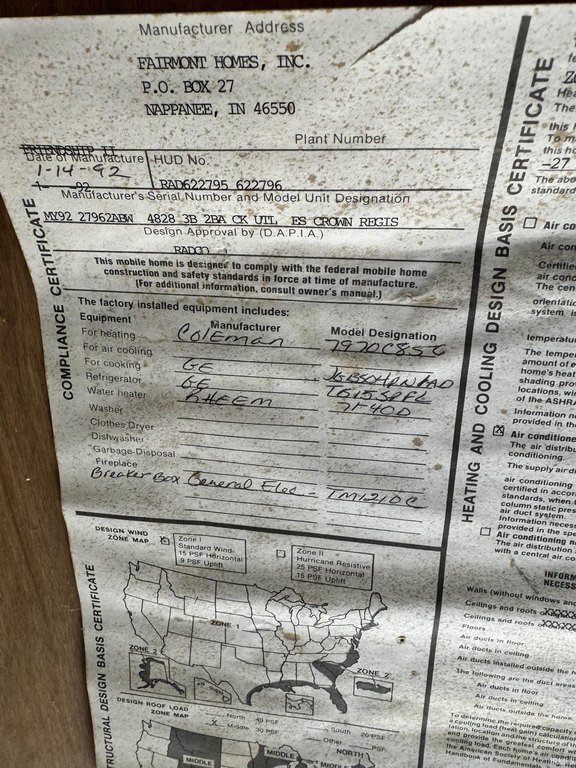 Manufacturer Address
FAIRMONT HOMES, INC.
P.O. BOX 27
NAPPANEE, IN 46550
Plant Number
FRIENDSHIP II
Date of Manufacture HUD No.
1-14-92
92 RAD622795 622796
Manufacturer's Serial Number and Model Unit Designation
MY92 27962ABW 4828 3B 2BA CK UTL ES CROWN REGIS
Design Approval by (D.A.P.I.A.)
RADCO
This mobile home is designed to comply with the federal mobile home
construction and safety standards in force at time of manufacture.
(For additional information, consult owner's manual.)
The factory installed equipment includes:
Equipment Manufacturer Model Designation
For heating Coleman
For air cooling
For cooking GE
Refrigerator GE
Water heater RHEEM
Washer
Clothes Dryer
Dishwasher
Garbage Disposal
Fireplace
Breaker Box General Elec - TM1210C
COMPLIANCE CERTIFICATE
DESIGN WIND
ZONE MAP
Zone I
Standard Wind
15 PSF Horizontal
9 PSF Uplift
Zone II
Hurricane Resistive
25 PSF Horizontal
15 PSF Uplift
ZONE 1
ZONE 2
ZONE 2
DESIGN ROOF LOAD
ZONE MAP
North 40 PSF
X Middle 30 PSF
South 20 PSF
Other PSF
NORTH
MIDDLE
MIDDLE
STRUCTURAL DESIGN BASIS CERTIFICATE
HEATING AND COOLING DESIGN BASIS CERTIFICATE
The
this
To m
this ho
-27
The abo
standard
Air co
Air con
Certifie
air cond
The cen
orientatio
system is
temperatur
The tempe
amount of e
home's heat
shading pro
locations, wi
of the ASHRA
Information n
provided in the
Air conditione
The air distribu
conditioning.
The supply air di
air conditioning
certified in accor
standards, when
column static pres
air duct system.
Information necess
provided in the spe
Air conditioning n
The air distribution
with a central air co
INFORM
NECESS
Walls (without windows and
Ceilings and roofs
Ceilings and roofs
Floors
Air ducts in floor
Air ducts in ceiling
Air ducts installed outside the h
The following are the duct areas
Air ducts in floor
Air ducts in ceiling
Air ducts outside the home
To determine the required capacity
a cooling load (heat gain) calculation